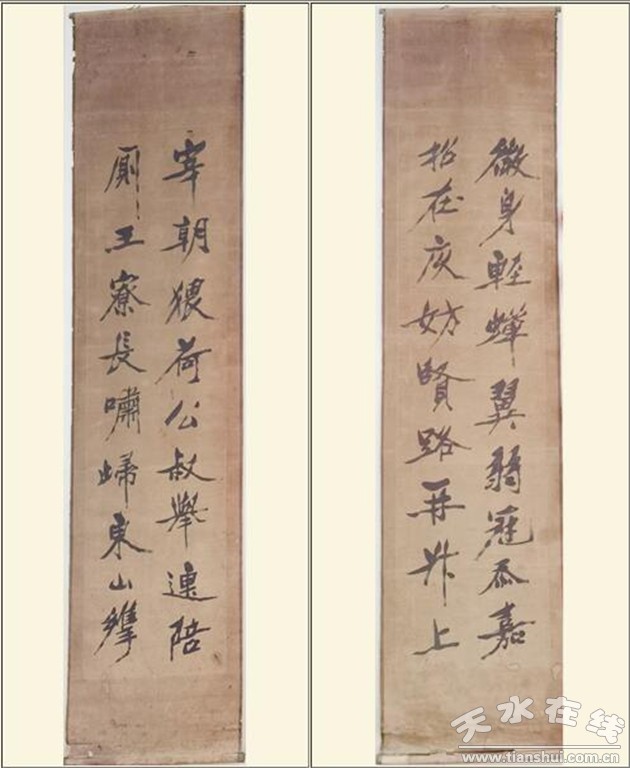 微身輕蟬翼弱冠忝嘉
招在疚妨賢路再升上
宰朝猥荷公叔舉連陪
廁王寮長嘯歸東山擁
天水在线
www.tianshui.com.cn